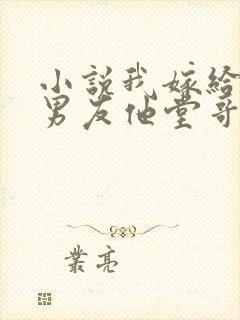 小說我嫁給
男友他堂哥
業亮